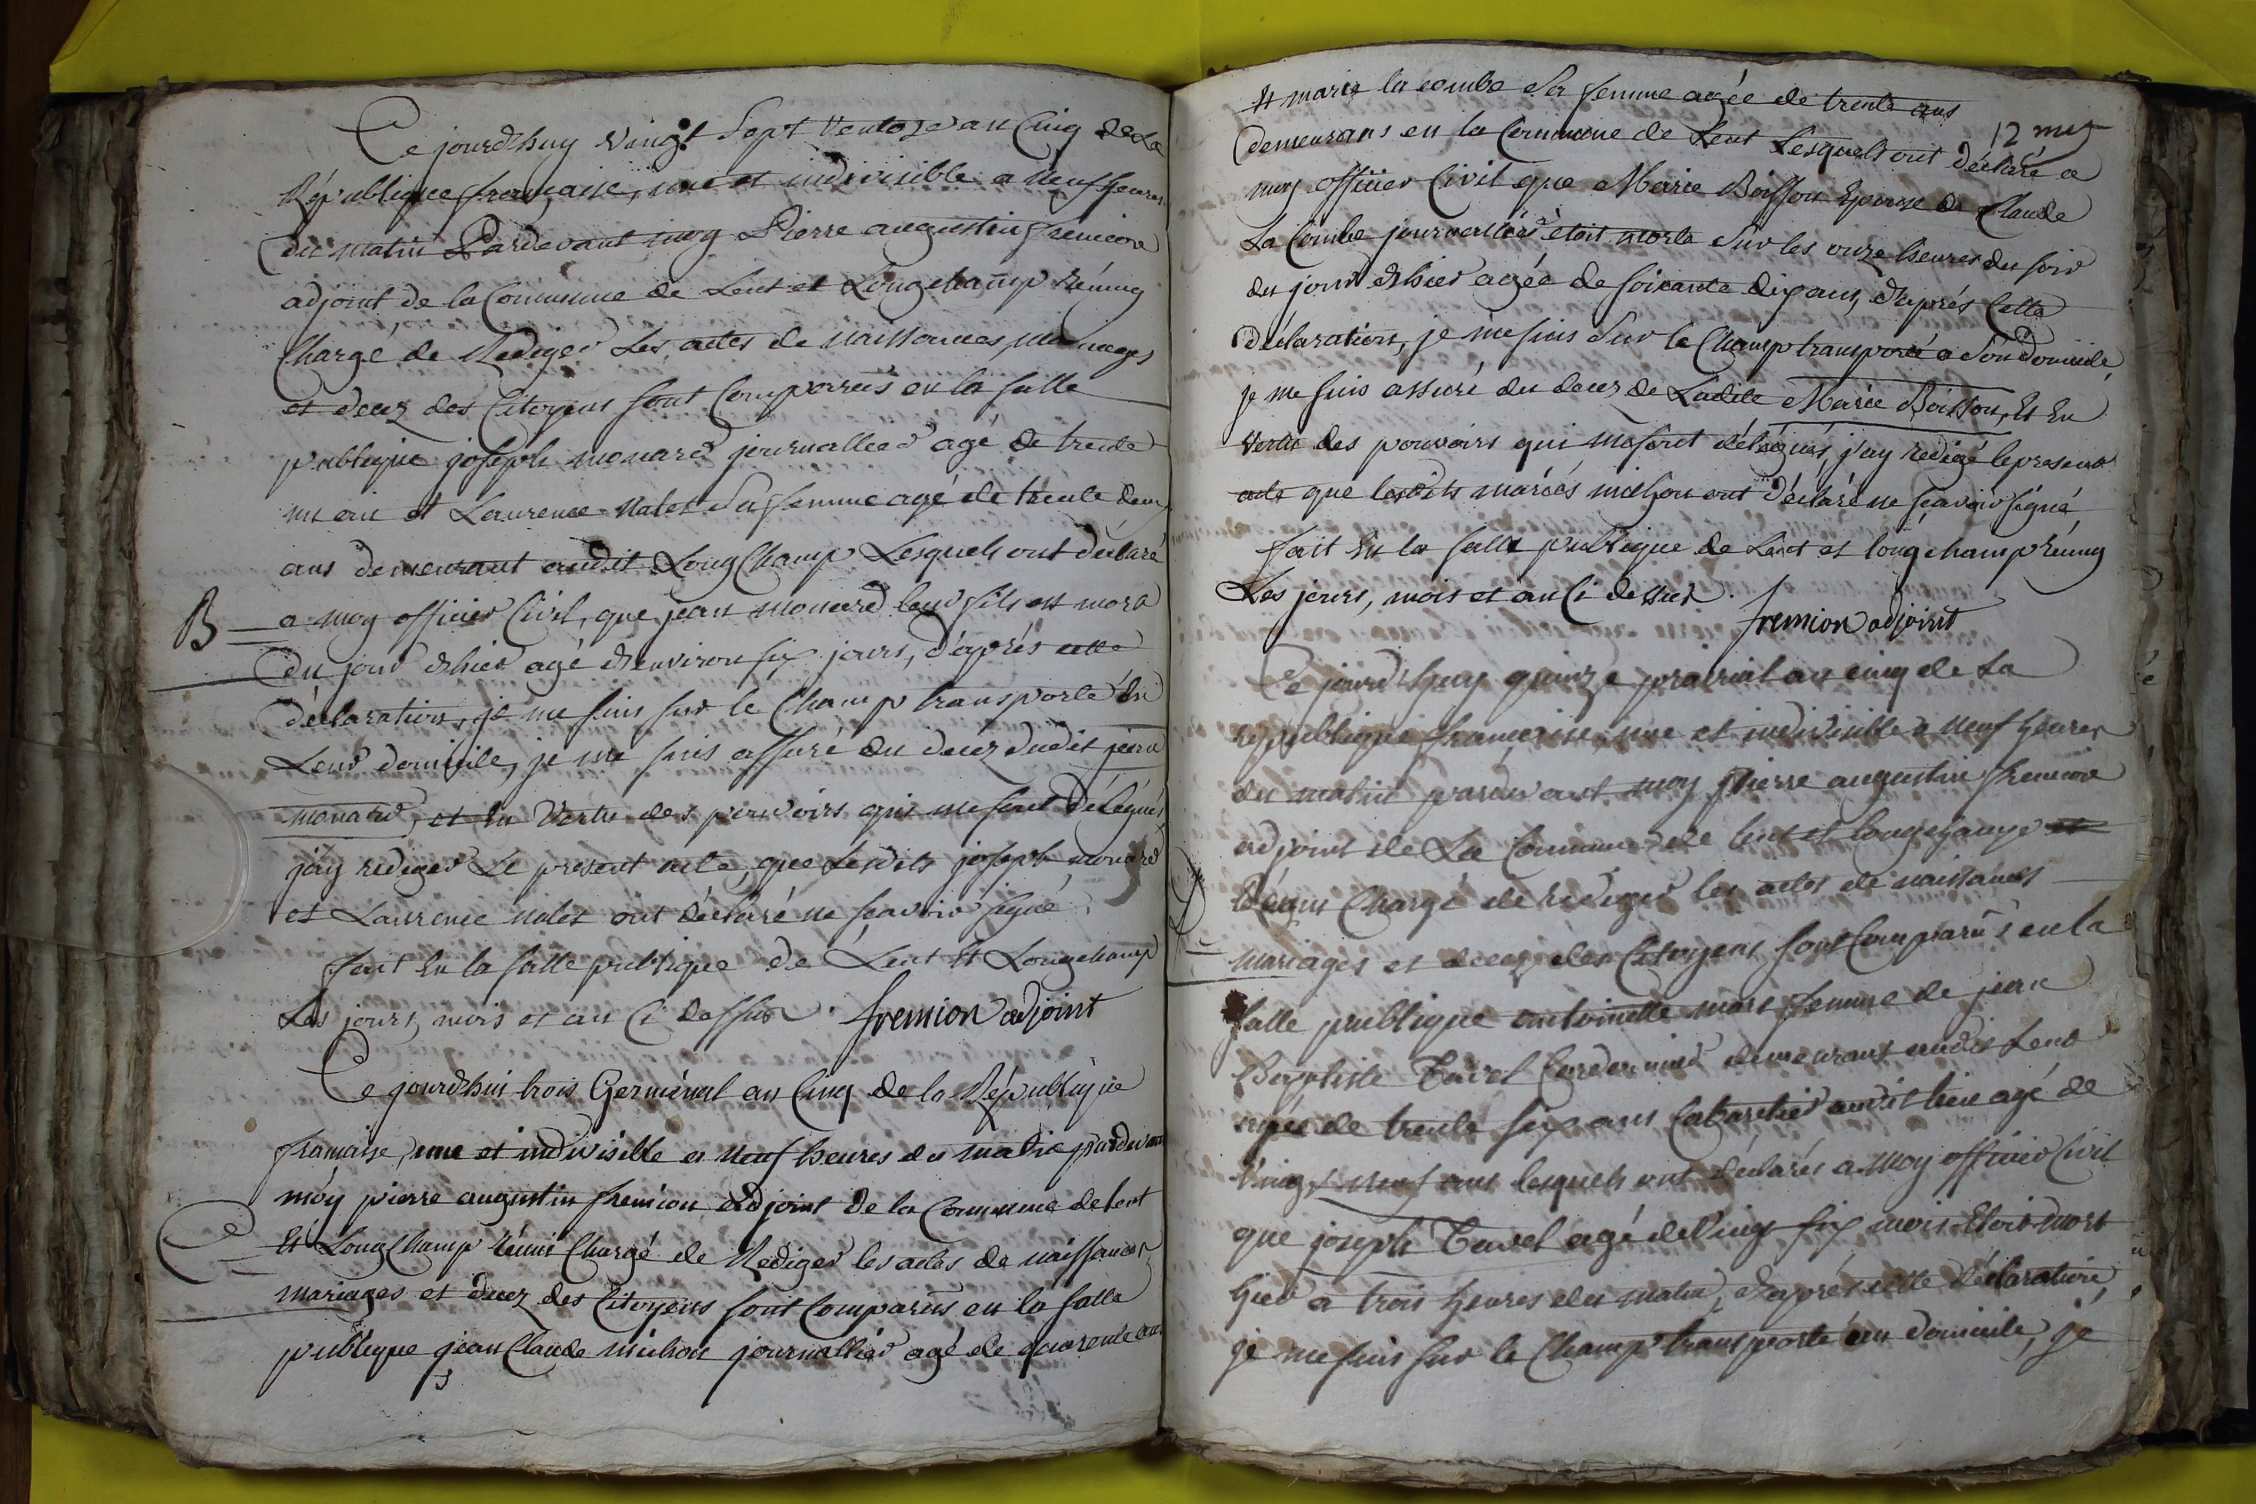 Ce jourd'huy vingt sept ventoze an Cinq de La
République française, une et indivisible a neuf heures
du matin Pardevant moy Pierre augustin fremion
adjoint de la Commune de Lent et Longchamp Réuny
Chargé de Rediger Les actes de naissances, mariages
et decez des Citoyens sont Comparus en la salle
publique joseph monard journallier agé de trente
un an et Laurence nalet sa femme agé de trente deux
ans demeurant audit LongChamp Lesquels ont déclaré
B
a moy officier Civil, que jean monard leur fils est mort
du jour d'hier agé d'environ six jours, d'après cette
déclaration, je me suis sur le Champ transporté en
Leur domicile, je me suis assuré du decez dudit jean
monard, et En Vertu des pouvoirs qui me sont délégués
j'ay rediger Le present acte, que Lesdits joseph monard
et Laurence nalet ont déclaré ne sçavoir signé.
fait En la salle publique de Lent Et Longchamp
Les jours, mois et an Ci dessus. fremion adjoint
Ce jourd'hui trois Germinal an Cinq de la République
francaise, une et indivisible a neuf heures du matin pardevant
móy pierre augustin fremion adjoint de la Commune de lent
C
Et LongChamp réuni Chargé de Rediger les actes de naissances
mariages et decez des Citoyens sont Comparus en la salle
publique jean Claude michon journallier agé de quarente ans
Et marie la combe sa femme agée de trente ans
12 
demeurans en la Commune de Lent Lesquels ont déclaré a
moy officier Civil que Marie Boisson Epouse de Claude
La Combe journallier étoit morte sur les onze heures du soir
du jour d'hier agée de soixante dix ans, d'après Cette
déclaration, je me suis sur le Champ transporté a son domicile,
je me suis assuré du decez de Ladite Marie Boisson, Et En
Vertu des pouvoirs qui me sont délégués, j'ay redigé le present
acte que lesdits mariés michon ont déclaré ne sçavoir signé
fait En la salle publique de Lent et longchamp Réuny
Les jours, mois et an Ci dessus.
fremion adjoint
Ce jourd'huy quinze prairial an cinq de La
république française, une et indivisible a neuf heures
du matin pardevant moy Pierre augustin fremion
adjoint de La Commune de lent et longchamp et
D
Réunis Chargé de rediger les actes de naissances
mariages et decez des Citoyens sont Comparus en la
salle publique antoinette femme de jean
Baptiste Tavel Cordonnier demeurant audit Lent
agée de trente six ans Cabaretier audit lieu agé de
vingt neuf ans lesquels ont déclarés a moy officier Civil
que joseph Tavel agé de Vingt six mois Etoit mort
hier a trois heures du matin, d'après cette déclaration,
je me suis sur le Champ transporté au domicile, je